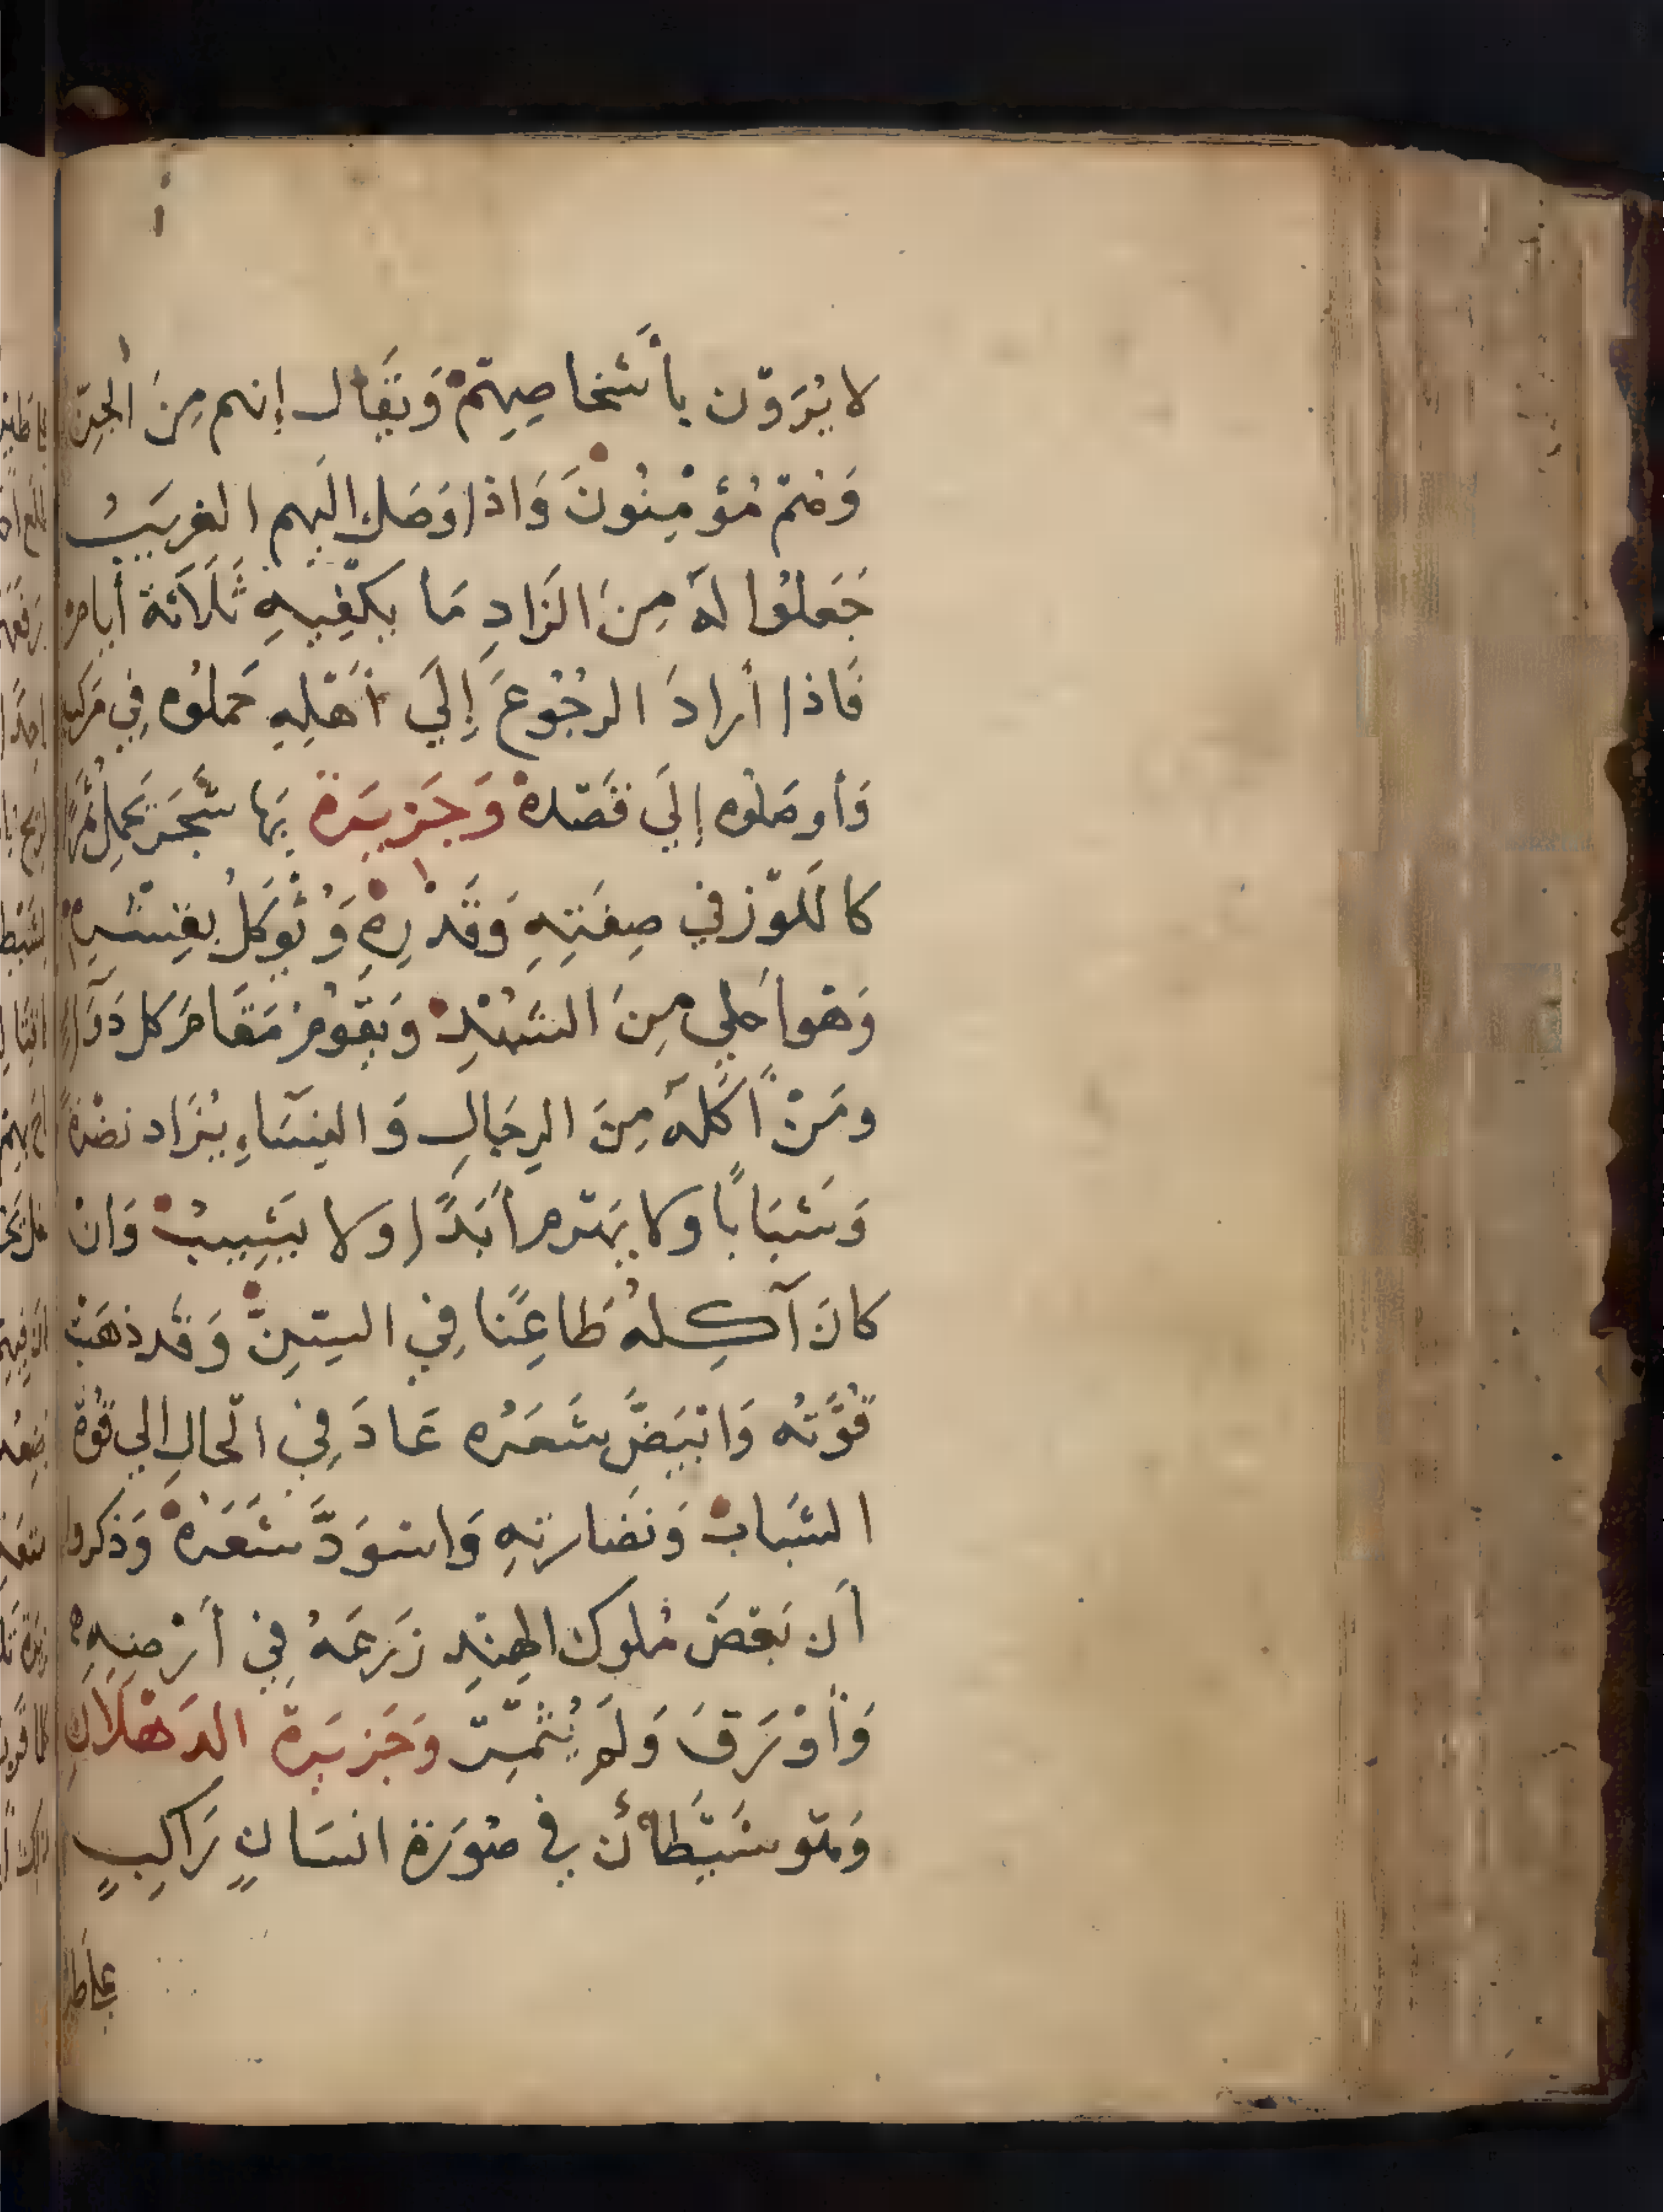 لا يُرَوْن بأشخاصِهِمْ وَيُقَال إنهم مِنَ الجِنّ
وَهُمْ مُؤْمِنُونَ وَاذا وَصَل اليهم الغريبُ
جَعَلوُا لَهُ مِنَ الزَادِ مَا يكفِيهِ ثَلَاثَة أيام
فَاذا أرادَ الرجُوُعَ إلَي أهْلِهِ حَملوُه فِي مَركب
وَأوصَلوُه إلَي قَصْدهْ وَجَزيرَة بَها شَجَر يَحمِل ثمَرًا
كاللَّوْز في صِفَتِهِ وَقَدْرِهِ وَيُؤكلُ بقِشْرِهِ
وَهْوا حلي مِنَ الشَهْدِ وَيَقوُمُ مَقَامَ كل دَوَآءٍ
ومَنْ أكلهُ مِنَ الرِجَالِ وَالنِسَاءِ يُزَاد نضْرَةً
وَشَبَابًا ولا يَهْرم أبَدًا ولا يَشِيبُ وَانْ
كانَ آكِلهُ طَاعِنًا فِي السِّنِّ وَقَد ذهَبَتْ
قُوَّتُه وَابْيَضَّ شَعَرُه عَادَ فِي الحالِ الي قُوَّة
الشَبابْ وَنَضَارتِهِ وَاسْوَدَّ شَعَرُهْ وَذكروا
أن بَعْضَ مُلوك الهِنْدِ زَرَعَهُ فِي أرْضِهِ
وَأوْرَقَ وَلَمْ يُثْمِرْ وَجَزيرَة الدَهْلَانِ
وَهْو شَيْطَانٌ في صُورَة انسَانٍ رَاكِبٍ
علي طير